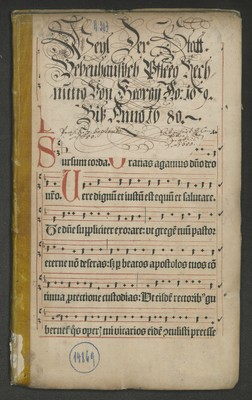 Der Statt
Bebenhausisch Pfleeg Rech
nung Von Georgy No: 1679.
Biß Anno 1680.
Sursum corda. Gratias agamus dño deo
nr̃o. Uere dignũ et iustũ est equũ et salutare.
Te dñe suppliciter exorare: ut gregẽ tuũ pastor
eterne nõ deseras: sȝ ꝑ beatos apostolos tuos cõ
tinua ꝓtectione custodias: Ut eisdẽ rectoribꝰ gu
bernet᷑ qͦs operꝭ tui vicarios eidẽ ꝯtulisti preesse
14869